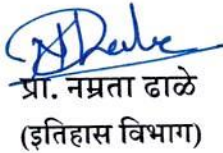 प्रा. नम्रता ढाळे
(इतिहास विभाग)